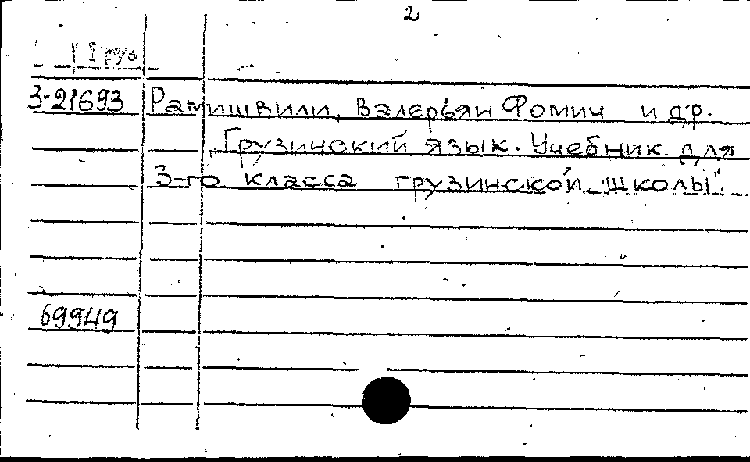 2
1 груз
3-21693 Рамишвили, Валерьян Фомич и др.
Грузинский язык. Учебник для
3-го класса грузинской школы.
69949